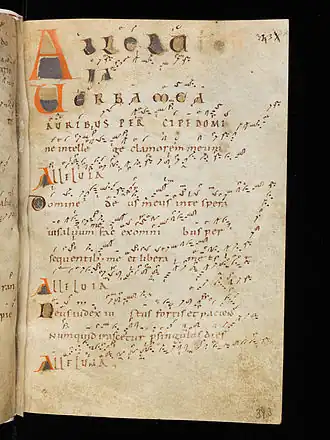 ALLELU
IA
VERBA MEA
AURIBUS PERCIPE DOMI
ne intelle ge clamorem meum
ALLELUIA
Domine deus meus in te spera
vi salvum fac ex omni bus per
sequentibus me et libera me
ALLELUIA
Deus iudex iu stus fortis et paciens
Numquid irascetur p singulos dies
ALLELUIA
343